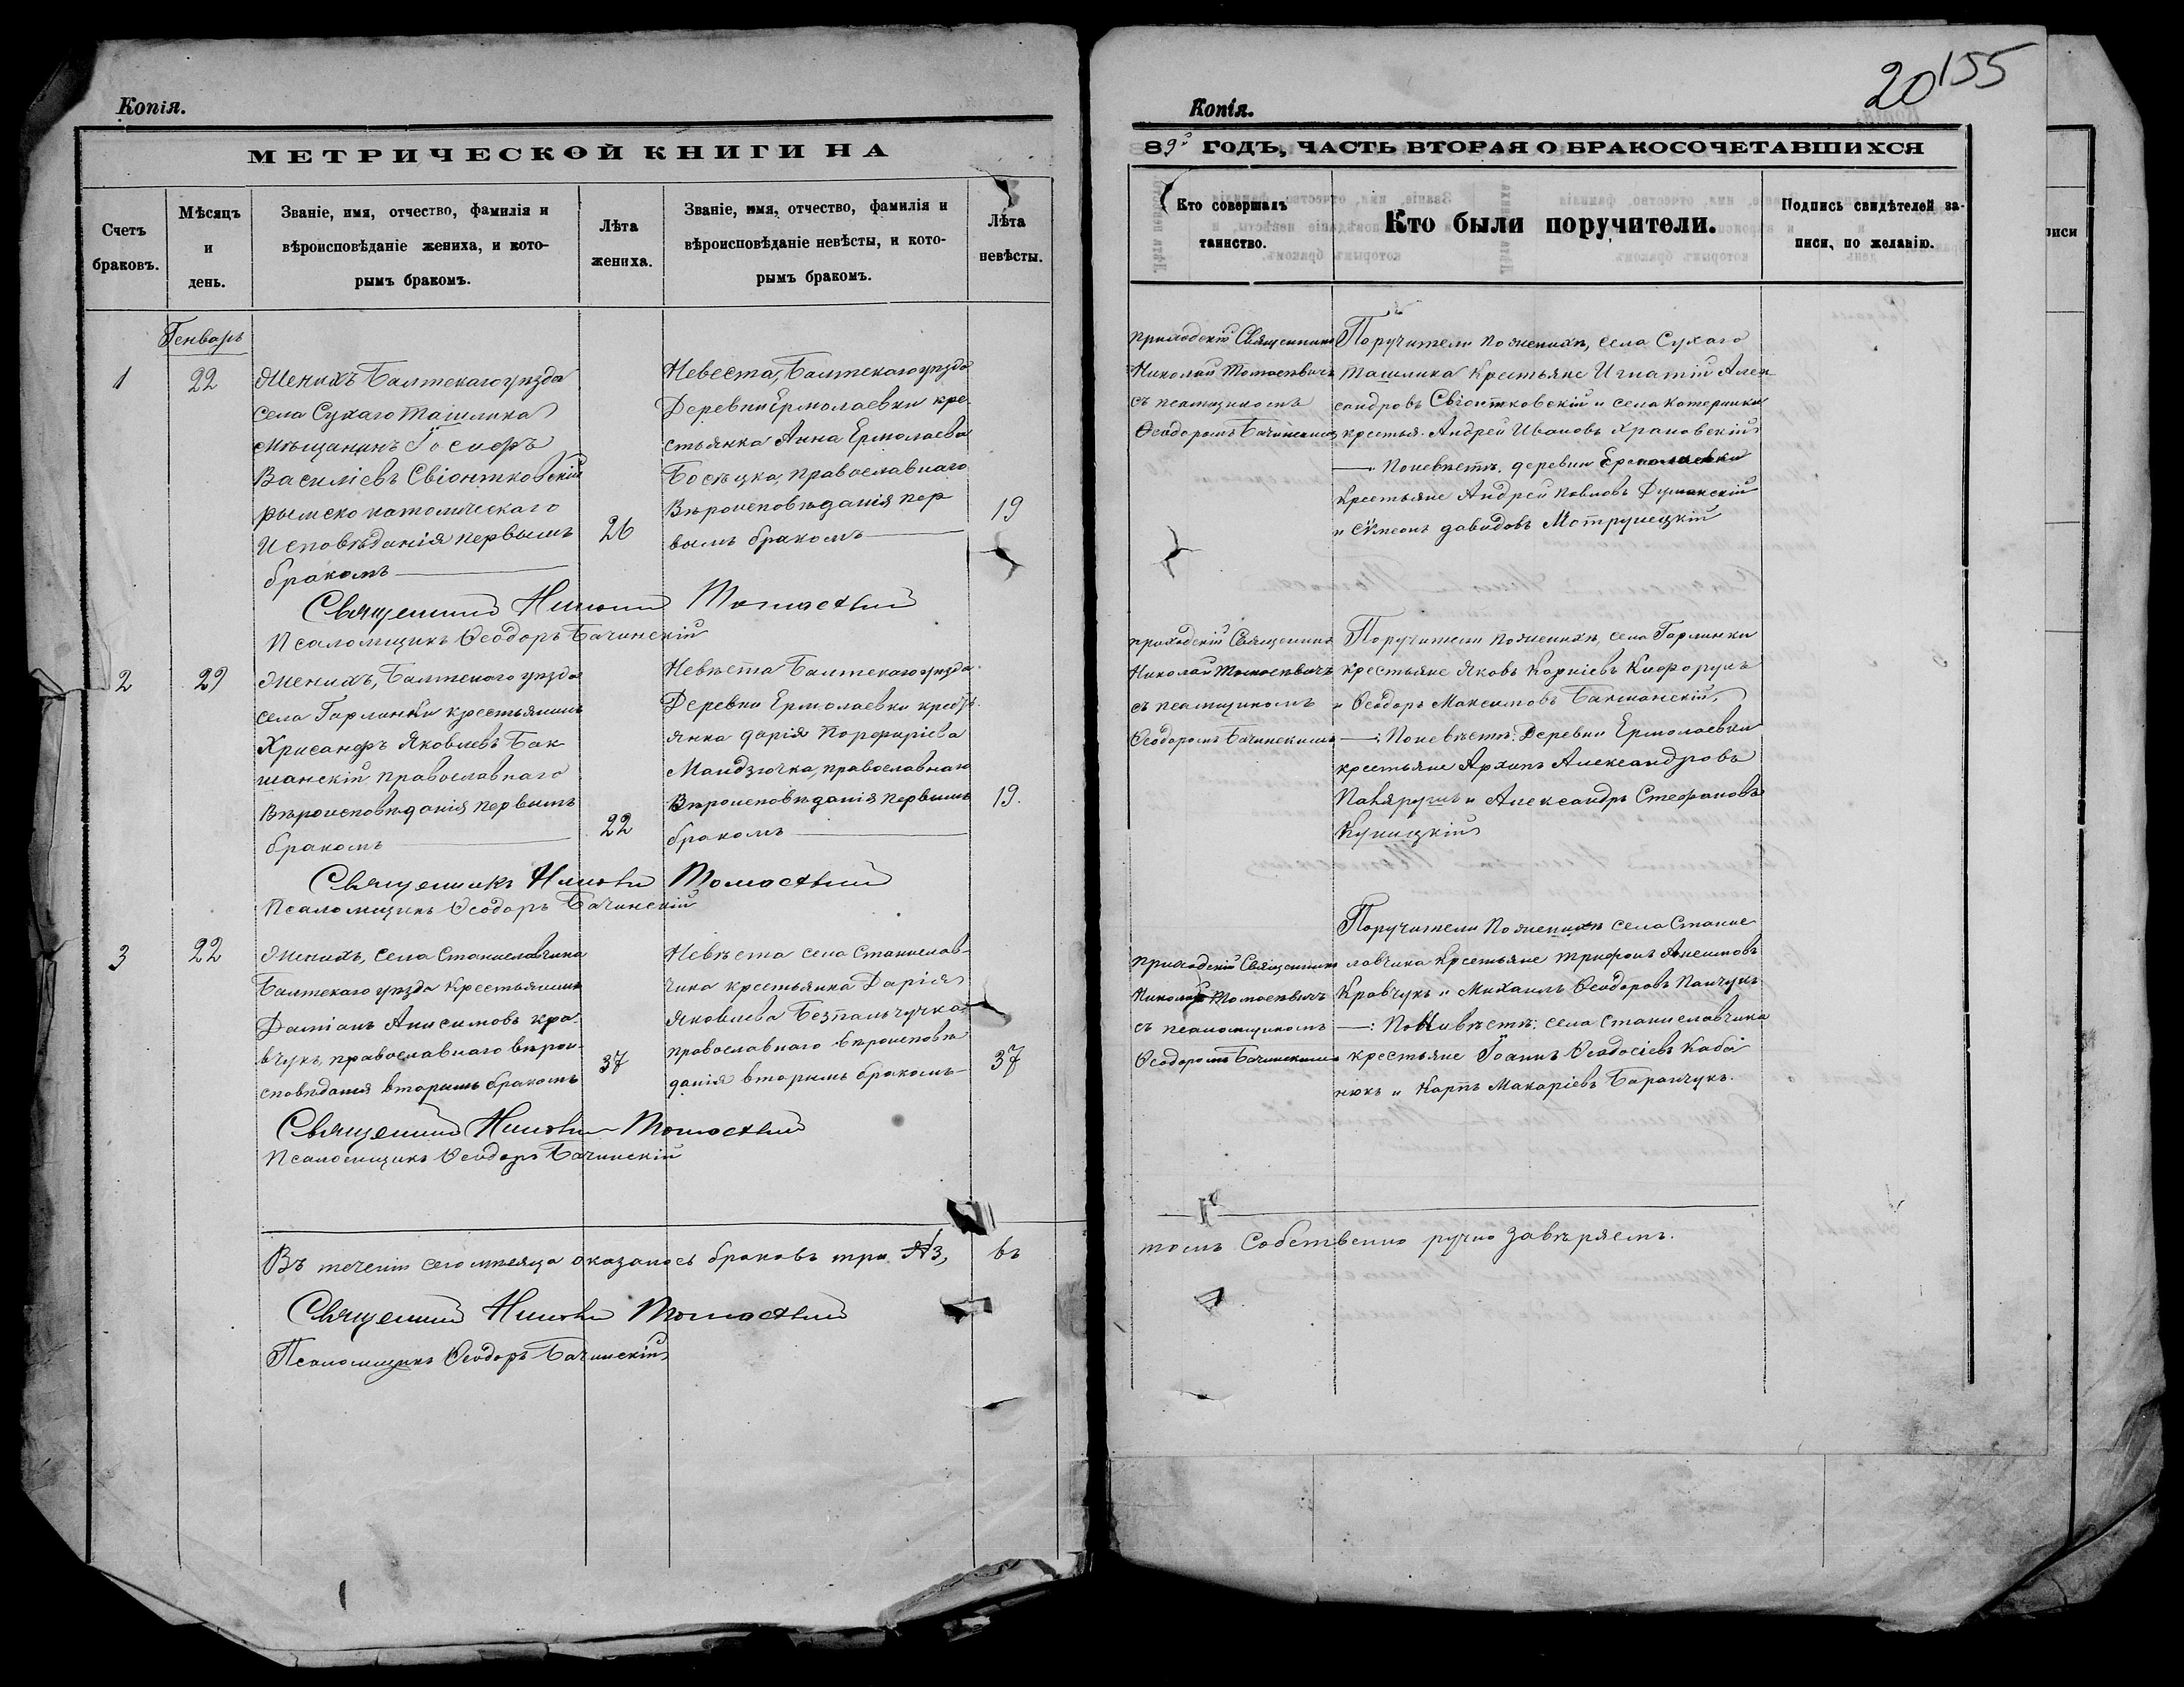 Копія.
МЕТРИЧЕСКОЙ КНИГИ НА
Счетъ браковъ.
Мѣсяцъ и день.
Званіе, имя, отчество, фамилія и вѣроисповѣданіе жениха, и которымъ бракомъ.
Лѣта жениха.
Званіе, имя, отчество, фамилія и вѣроисповѣданіе невѣсты, и которымъ бракомъ.
Лѣта невѣсты.
Генварь
1
22
Женихъ Балтскаго уѣзда
села Сухаго Ташлика
мѣщанинъ Іосифъ
Василіевъ Свіонтковскій
римско католическаго
Исповѣданія первымъ
бракомъ
26
Невеста, Балтскаго уѣзда
Деревни Ермолаевки кре-
стьянка Анна Ермолаева
православнаго
Вѣроисповѣданія пер
вымъ бракомъ
19
Священникъ Николай
Псаломщикъ Ѳеодоръ Бачинскій
2
29
Женихъ, Балтскаго уѣзда
села Гарлинки крестьянинъ
Хрисанфъ Яковлевъ Бак
шанскій православнаго
Вѣроисповѣданія первымъ
бракомъ
22
Невѣста Балтскаго уѣзда
Деревни Ермолаевки крестъ
янка Дарія Порфиріева
Мандзючка, православнаго
Вѣроисповѣданія первымъ
бракомъ
19.
Священникъ Николай
Псаломщикъ Ѳеодоръ Бачинскій
3
22
Женихъ, села Станиславчика
Балтскаго уѣзда крестьянинъ
Даміанъ Анисимовъ кра-
вчукъ, православнаго вѣрои-
сповѣданія вторымъ бракомъ
37
Невѣста села Станислав-
чика крестьянка Дарія
Яковлева Безпальчучка
православнаго вѣроисповѣ
данія вторымъ бракомъ
37
Священникъ Николай
Псаломщикъ Ѳеодоръ Бачинскій
Въ теченіи сего мѣсяца оказалось браковъ три №3, въ
Священникъ Николай
Псаломщикъ Ѳеодоръ Бачинскій
20 155
Копія.
89й ГОДЪ, ЧАСТЬ ВТОРАЯ О БРАКОСОЧЕТАВШИХСЯ
Кто совершалъ таинство.
Кто были поручители.
Подпись свидѣтелей записи, по желанію.
писи
приходскій Священникъ
Николай Томасевичъ
съ псаломщикомъ
Ѳеодоромъ Бачинскимъ
Поручители По женихѣ, села Сухаго
Ташлика Крестьяне Игнатій Алек
сандровъ Свіонтковскій и села Катеринки
крестья. Андрей Ивановъ Храновскій
—: По невѣстѣ. деревни Ермолаевки
Крестьяне Андрей Павловъ Думанскій
и Сѵмеонъ Давидовъ Мотрунецкій
приходскій Священникъ
Николай Томасевичъ
съ псаломщикомъ
Ѳеодоромъ Бачинскимъ
Поручители По женихѣ, села Гарлинки
крестьяне Яковъ Корніевъ
и Ѳеодоръ Максимовъ Бакшанскій,
—: По невѣстѣ: Деревни Ермолаевки
крестьяне Архипъ Александровъ
и Александръ Стефановъ
Куницкій
приходскій Священникъ
Николай Томасевичъ
съ псаломщикомъ
Ѳеодоромъ Бачинскимъ
Поручители По женихѣ села Станис
лавчика Крестьяне Трифонъ Анисимовъ
Кравчукъ и Михаилъ Ѳеодоровъ Панчукъ
—: По Нивѣстѣ: села Станиславчика
крестьяне Іоаннъ Ѳеодосіевъ Каба
нюкъ и Карпъ Макаріевъ Баранчукъ.
томъ Собственно ручно Завѣряемъ.